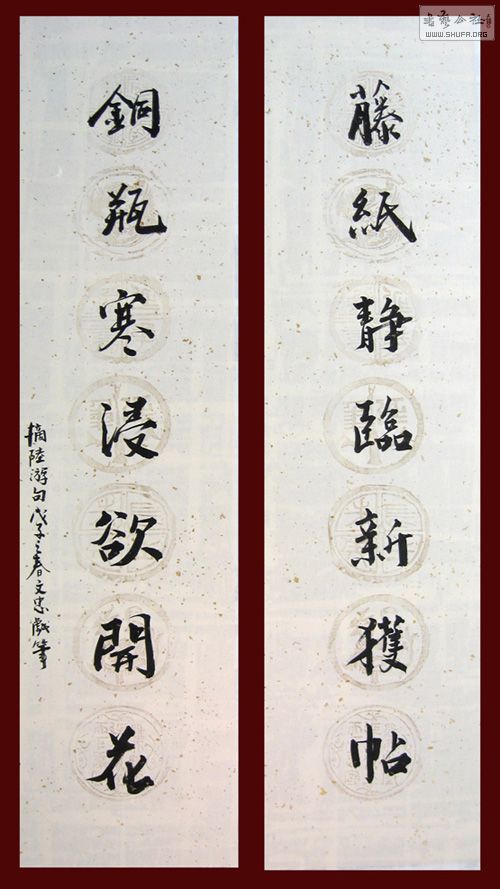 藤紙静臨新獲帖
銅瓶寒浸欲開花
摘陸游句戊子之春文忠戲筆
WWW.SHUFA.ORG